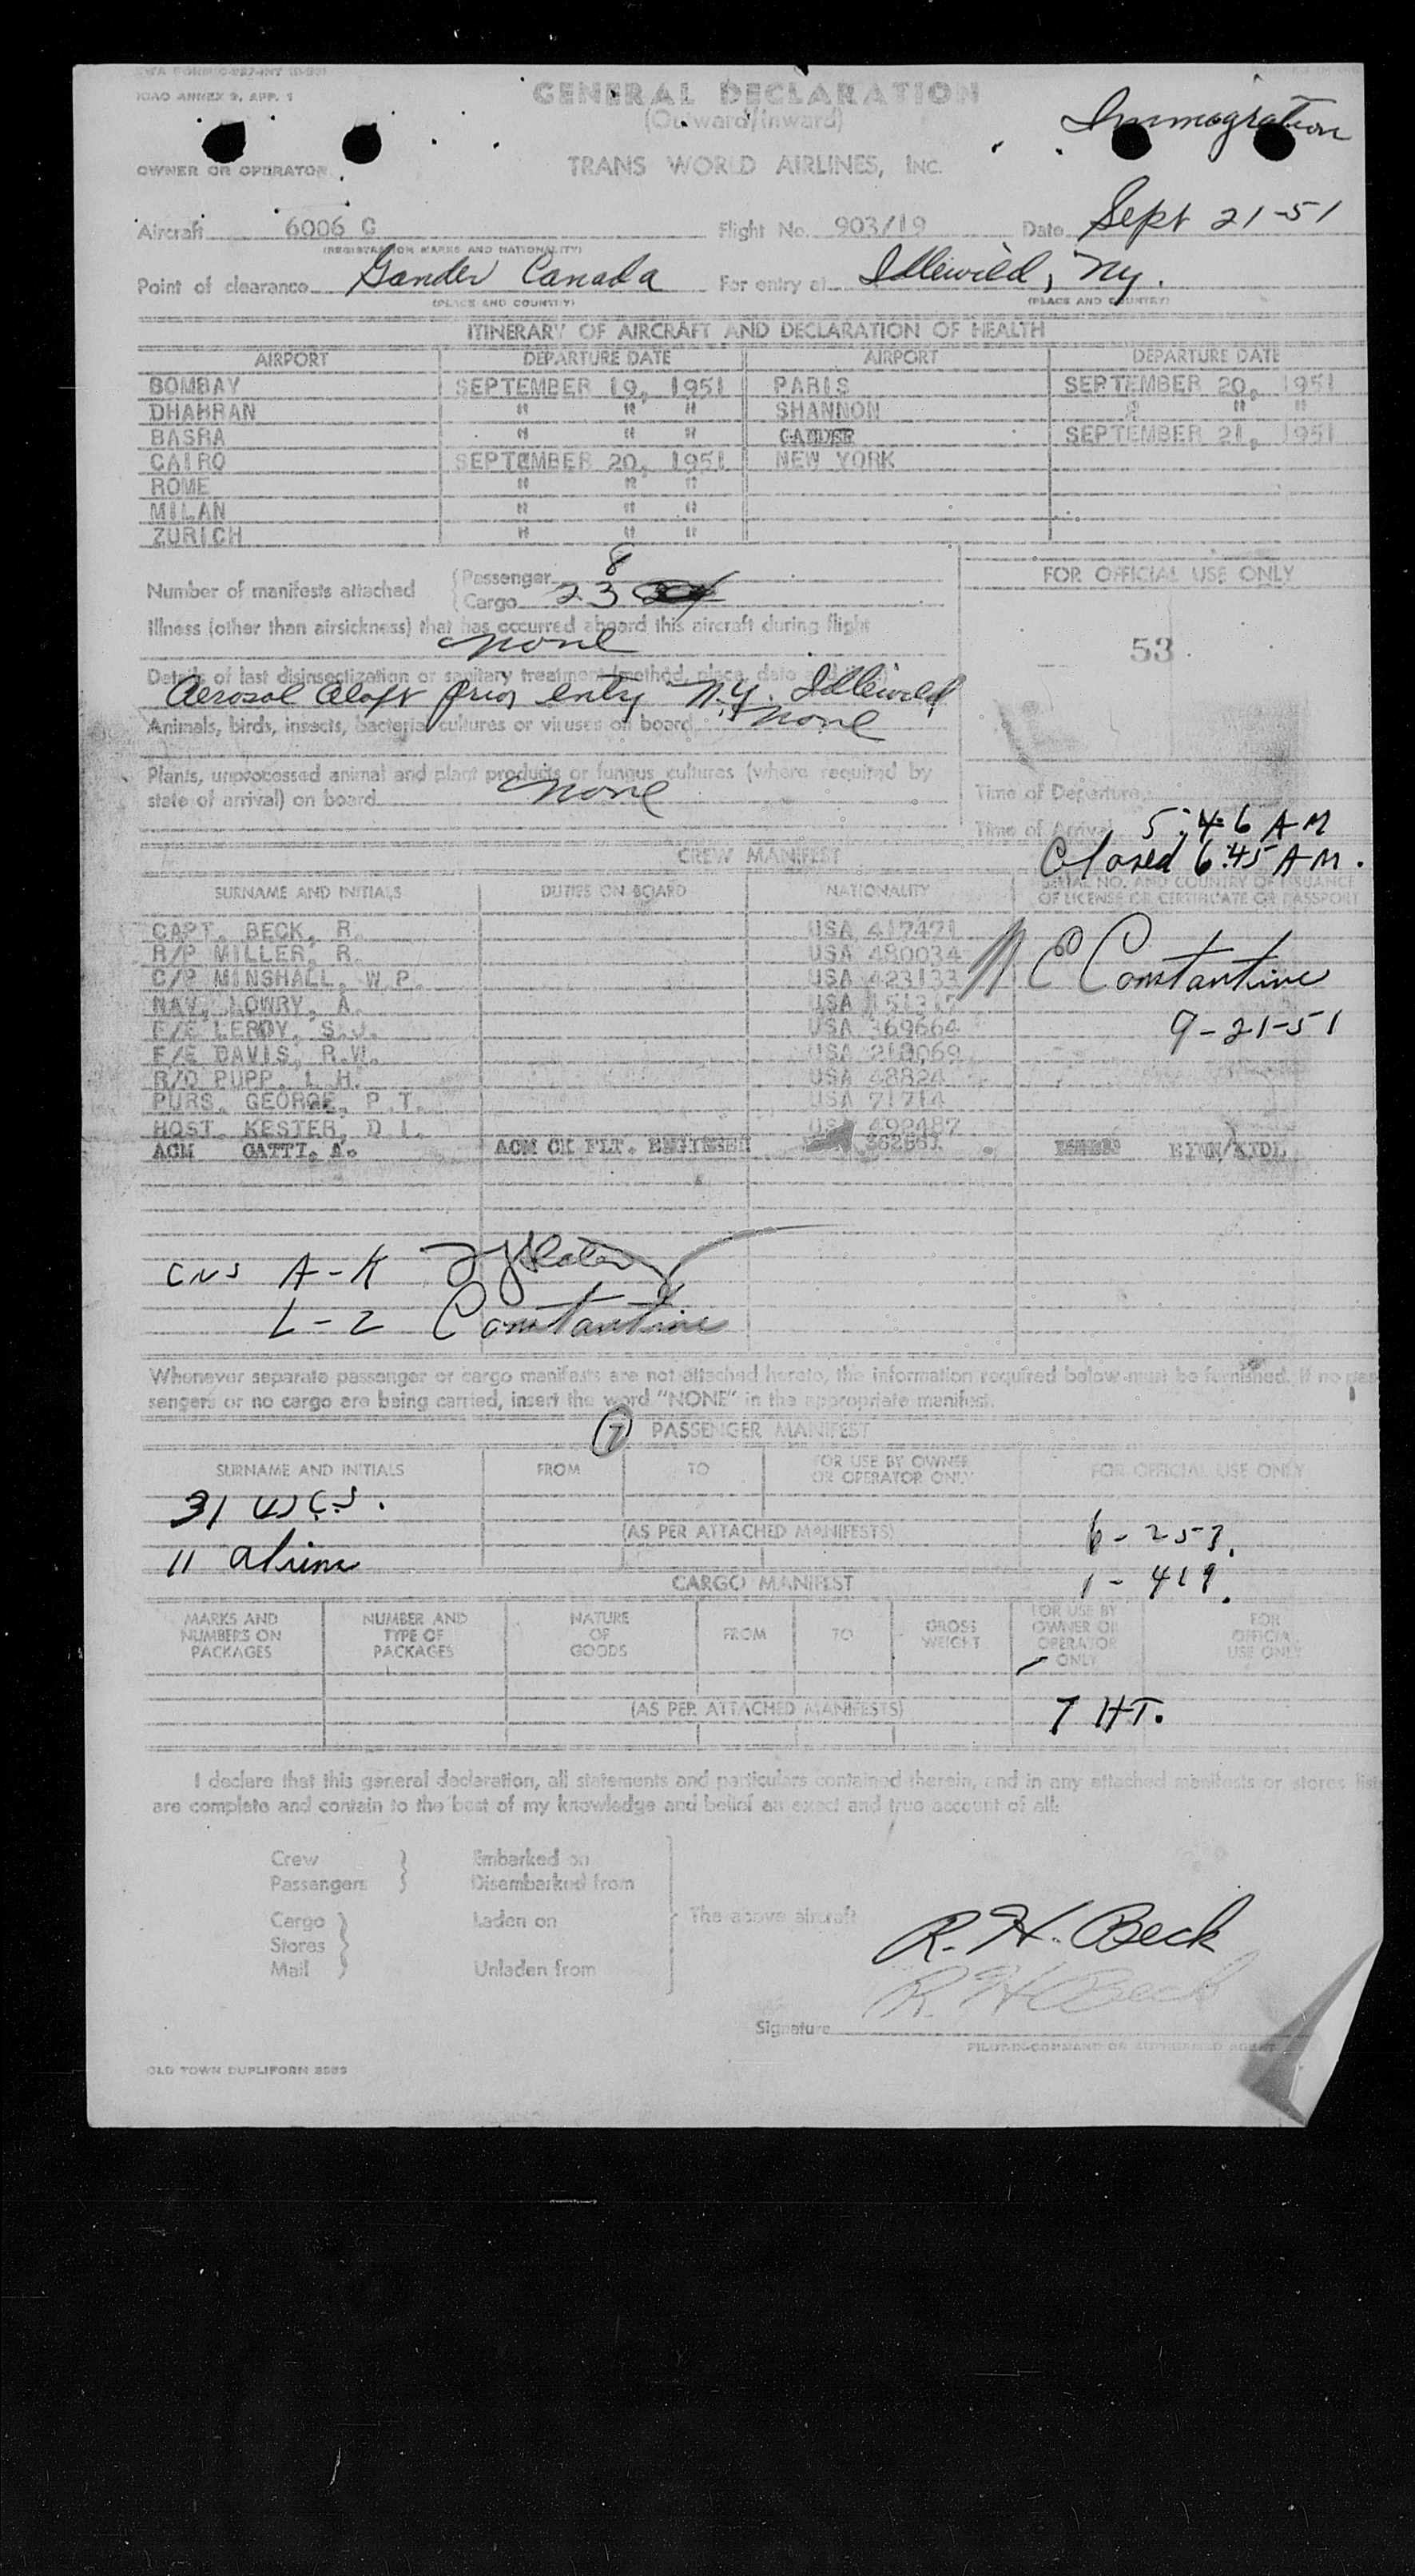 TWA FORM
ICAO ANNEX 9, APP. 1
GENERAL DECLARATION
(Outward/Inward)
Immigration
OWNER OR OPERATOR
TRANS WORLD AIRLINES, INC.
Aircraft 6006 C Flight No. 903/19 Date Sept 21-51
(REGISTRATION MARKS AND NATIONALITY)
Point of clearance Gander Canada For entry at Idlewild, Ny.
(PLACE AND COUNTRY) (PLACE AND COUNTRY)
ITINERARY OF AIRCRAFT AND DECLARATION OF HEALTH
AIRPORT DEPARTURE DATE AIRPORT DEPARTURE DATE
BOMBAY SEPTEMBER 19, 1951 PARIS SEPTEMBER 20, 1951
DHAHRAN " " " SHANNON " " "
BASRA " " " GANDER SEPTEMBER 21, 1951
CAIRO SEPTEMBER 20, 1951 NEW YORK
ROME " " "
MILAN " " "
ZURICH " " "
Number of manifests attached
Passenger 8
Cargo 23
FOR OFFICIAL USE ONLY
Illness (other than airsickness) that has occurred aboard this aircraft during flight
none
53
Details of last disinsectization or sanitary treatment (method, place, date
Aerosol aloft prior entry N.Y. Idlewild
Animals, birds, insects, bacterial cultures or viruses on board none
Plants, unprocessed animal and plant products or fungus cultures (where required by
state of arrival) on board none
Time of Departure
Time of Arrival 5:46 AM
Closed 6:45 AM.
CREW MANIFEST
SURNAME AND INITIALS DUTIES ON BOARD NATIONALITY SERIAL NO. AND COUNTRY OF ISSUANCE
OF LICENSE OR CERTIFICATE OR PASSPORT
CAPT. BECK, R. USA 417471
R/P MILLER, R. USA 480034
C/P MINSHALL, W.P. USA 423133
NAV. LOWRY, A. USA
E/E LEROY, S.J. USA 369664
E/E DAVIS, R.W. USA 210069
R/O PUPP, L H. USA 48824
PURS. GEORGE, P.T. USA 71714
HOST. KESTER, D I. USA 492487
ACM GATTI, A. ACM CK FLT. ENGINEER
Constantine
9-21-51
CNS A-K
L-Z Constantine
Whenever separate passenger or cargo manifests are not attached hereto, the information required below must be furnished. If no pas-
sengers or no cargo are being carried, insert the word "NONE" in the appropriate manifest.
7 PASSENGER MANIFEST
SURNAME AND INITIALS FROM TO FOR USE BY OWNER OR OPERATOR ONLY FOR OFFICIAL USE ONLY
31 USCS.
(AS PER ATTACHED MANIFESTS)
6-257.
11 aliens
1-419.
CARGO MANIFEST
MARKS AND NUMBERS ON PACKAGES NUMBER AND TYPE OF PACKAGES NATURE OF GOODS FROM TO GROSS WEIGHT FOR USE BY OWNER OR OPERATOR ONLY FOR OFFICIAL USE ONLY
(AS PER ATTACHED MANIFESTS)
7 HT.
I declare that this general declaration, all statements and particulars contained therein, and in any attached manifests or stores list
are complete and contain to the best of my knowledge and belief an exact and true account of all:
Crew Embarked on
Passengers Disembarked from
Cargo Laden on The above aircraft
Stores
Mail Unladen from
R. H. Beck
R. H Beck
Signature
PILOT-IN-COMMAND OR AUTHORIZED AGENT
OLD TOWN DUPLIFORM